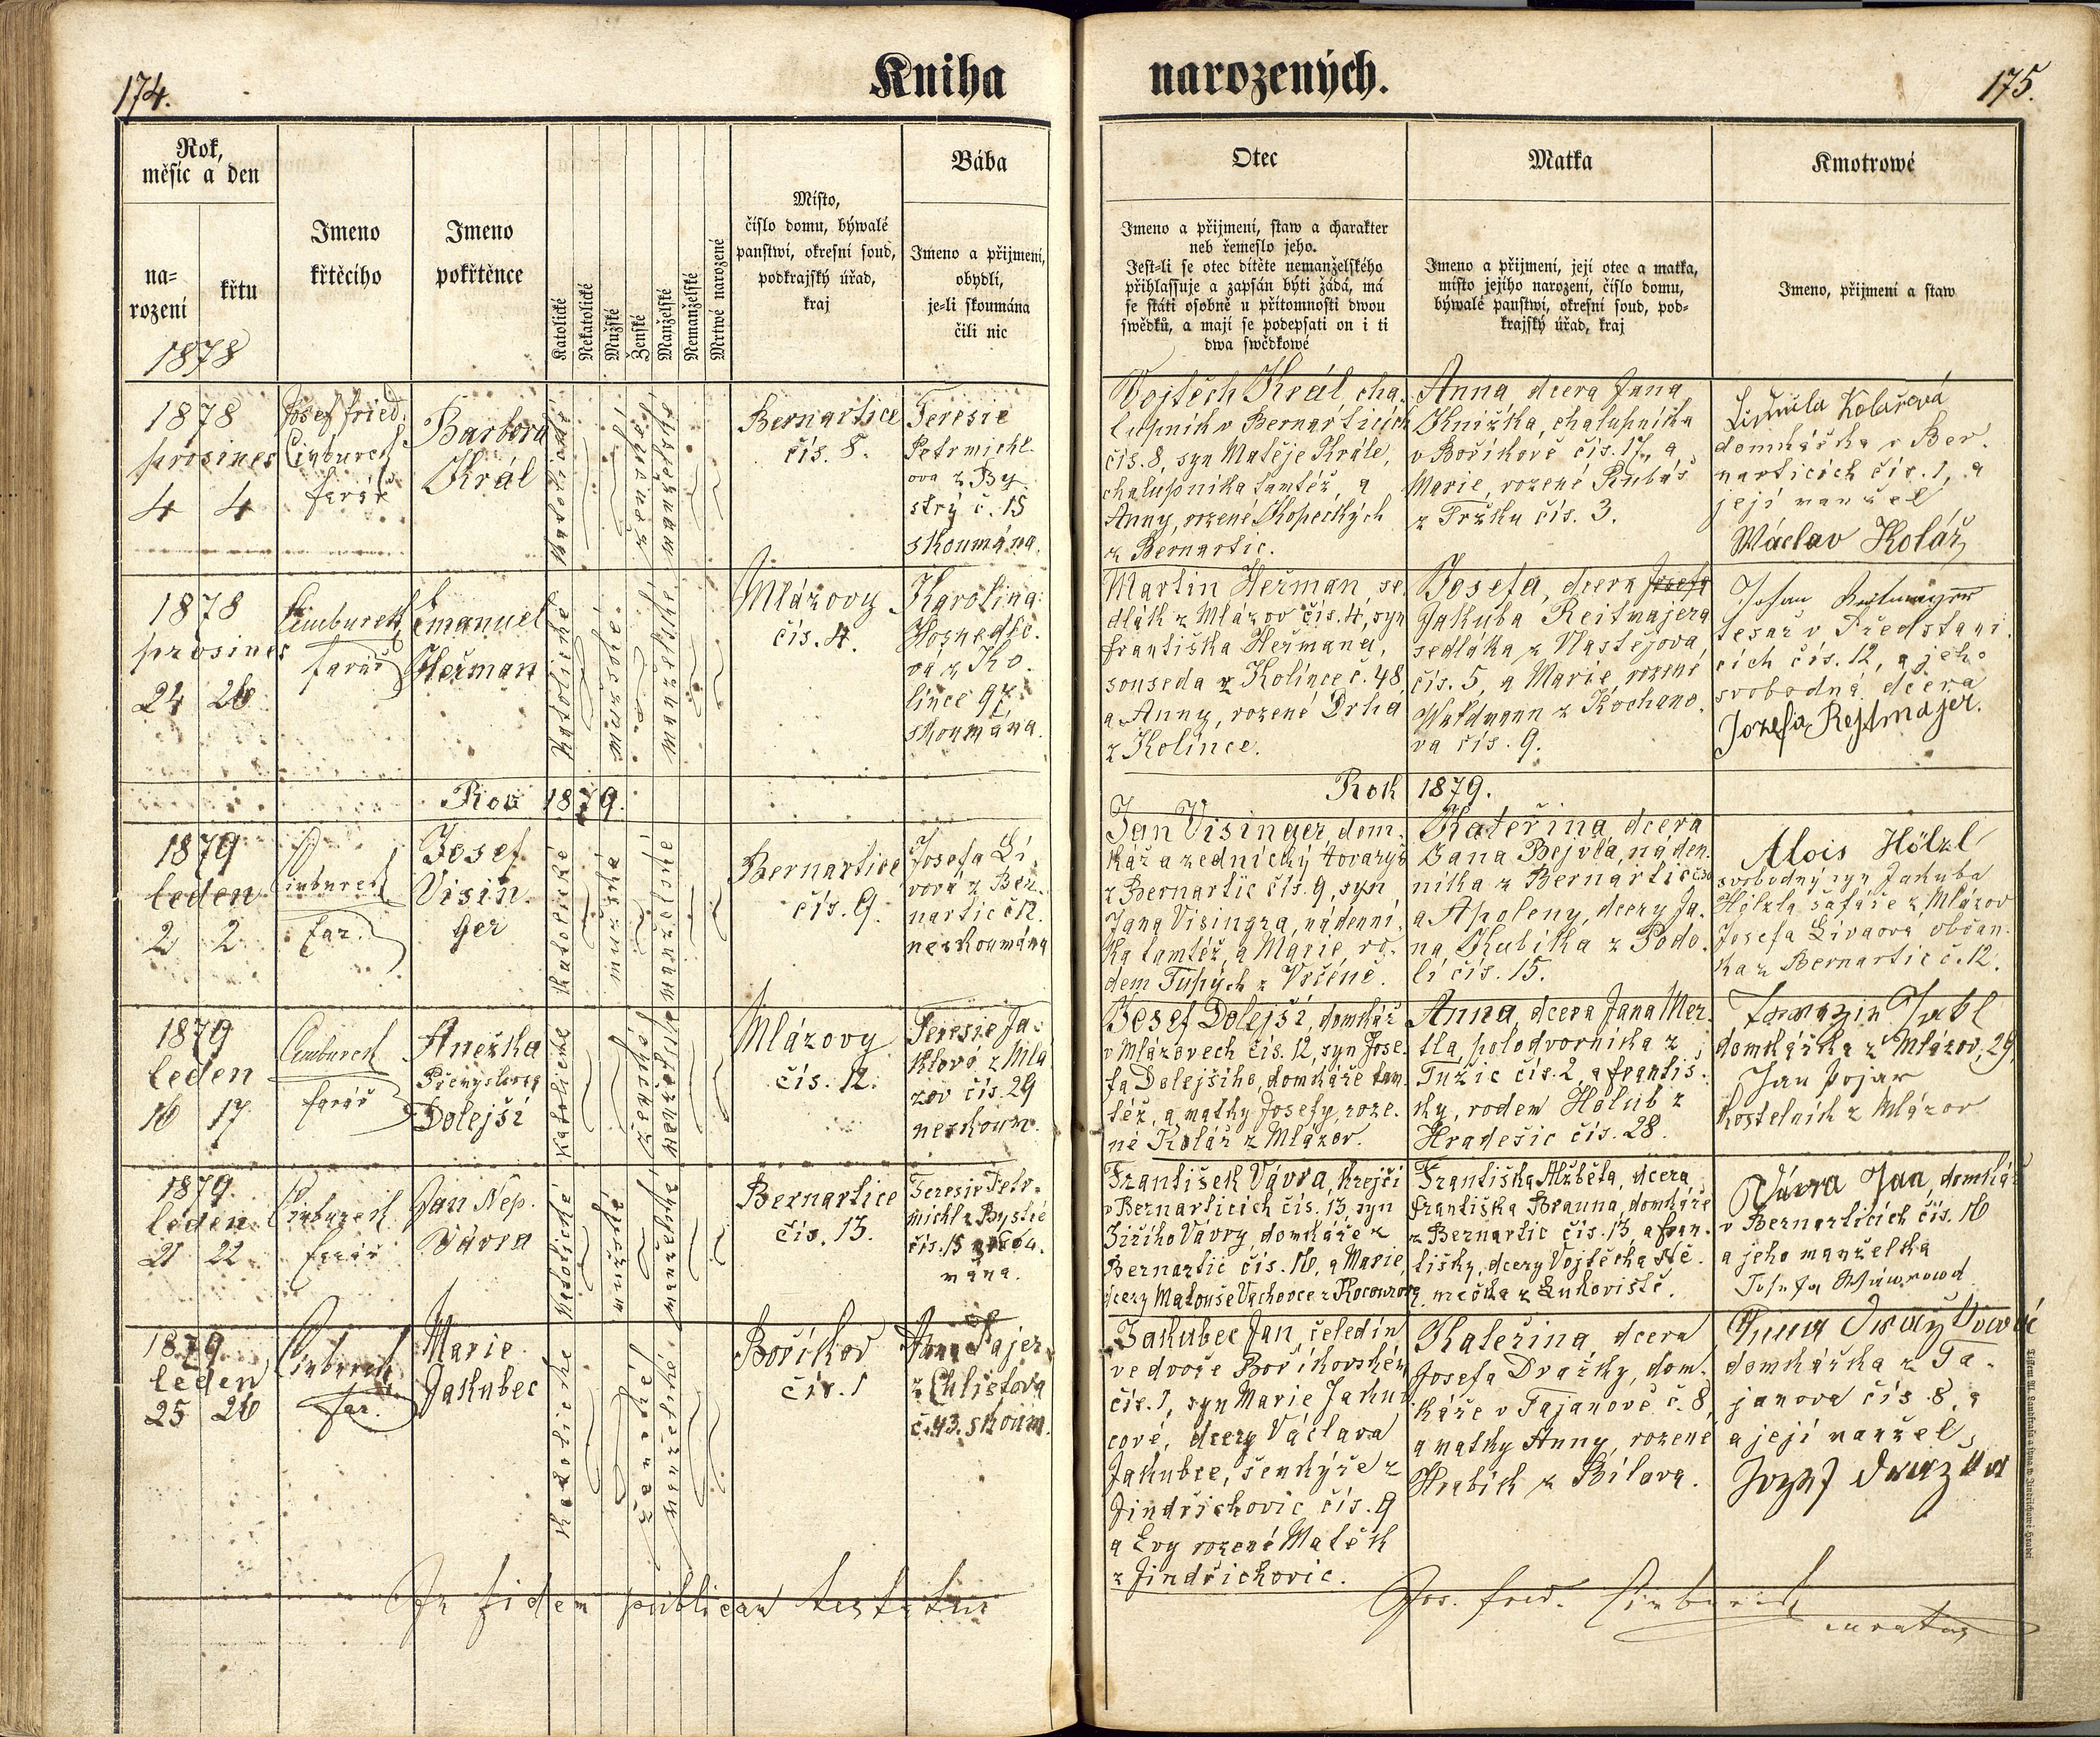 174.
Kniha
narozených.
175.
Rok,
měsíc a den
na-
rození
křtu
1878
Jmeno
křtěcího
Jmeno
pokřtěnce
Katolické
Nekatolické
Mužské
Ženské
Manželské
Nemanželské
Mrtwě narozené
Místo,
číslo domu, býwalé
panstwí, okresní soud,
podkrajský úřad,
kraj
Bába
Jmeno a přijmení,
obydlí,
je-li skoumána
čili nic
Otec
Jmeno a přijmení, staw a charakter
neb řemeslo jeho.
Jest-li se otec dítěte nemanželského
přihlassuje a zapsán býti žádá, má
se státi osobně u přítomnosti dwou
swědků, a mají se podepsati on i ti
dwa swědkowé
Matka
Jmeno a přijmení, její otec a matka,
místo jejího narození, číslo domu,
býwalé panstwí, okresní soud, pod-
krajský úřad, kraj
Kmotrowé
Jmeno, přijmení a staw
1878
prosinec
4 4
Josef Fried.
Cinburek
farář
Barbora
Král
katolické
ženské
manželské
Bernartice
čís. 8.
Teresie
Petrmichl-
ova z By-
strý č. 15
skoumána.
Vojtěch Král, cha-
lupník v Bernarticích
čís. 8, syn Matěje Krále,
chalupníka tamtéž, a
Anny, rozené Kopeckých
z Bernartic.
Anna dcera Jana
Knižka, chalupníka
v Boříkově čís. 17, a
Marie, rozené Kubáš
z Tržku čís. 3.
Ludmila Kolářová
domkářka v Ber-
narticích čís. 1, a
její manžel
Wáclav Kolář
1878
prosinec
24 26
Cinburek
farář
Emanuel
Heřman
katolické
mužské
manželské
Mlázovy
čís. 4.
Karolina
va z Ko-
lince 97
skoumána.
Martin Heřman, se-
dlák z Mlázov čís. 4, syn
Františka Heřmana,
souseda z Kolince č. 48,
a Anny, rozené Drha
z Kolince.
Josefa, dcera Josefa
Jakuba Reitmajera
sedláka z Vlastějova,
čís. 5, a Marie, rozené
Waldmann z Kochano-
va čís. 9.
Johan Reitmayer
tesař v Předslavi-
cích čís. 12, a jeho
svobodná dcera
Jozefa Rejtmajer.
Rok 1879.
Rok 1879.
1879
leden
2 2
Cinburek
far.
Josef
Visin-
ger
katolické
mužské
manželské
Bernartice
čís. 9.
Josefa Li-
vová z Ber-
nartic č12.
neskoumána
Jan Visinger, dom-
kář a zednický tovaryš
z Bernartic čís. 9, syn
Jana Visingra, nádenní-
ka tamtéž, a Marie, ro-
dem Tupých z Vrčéně.
Kateřina, dcera
Jana Bejvla, náden-
níka z Bernartic
a Apoleny, dcery Ja-
na Kubíka z Podo-
lí čís. 15.
Alois Hölzl
svobodný syn Jakuba
Hölzla šafáře z Mlázov
Josefa Livaová občan-
ka z Bernartic č. 12.
1879
leden
16 17
Cinburek
farář
Anežka
Přemyslovna
Dolejší
katolické
ženské
manželské
Mlázovy
čís. 12.
Teresie Ja-
klová z Mlá-
zov čís. 29
neskoum.
Josef Dolejší, domkář
v Mlázovech čís. 12, syn Jose-
fa Dolejšího, domkáře tam-
též, a matky Josefy, roze-
né Kolář z Mlázov.
Anna, dcera Jana Mer-
tla, polodvorníka z
Tužic čís. 2, a Františ-
ky, rodem Holub z
Hradešic čís. 28.
domkářka z Mlázov, 29
Jan Pojar
kostelník z Mlázov
1879
leden
21 22
Cinburek
farář
Jan Nep.
Vávra
katolické
mužské
manželské
Bernartice
čís. 13.
Teresie Petr-
michl z Bystré
čís. 15 skou-
mána.
František Vávra, krejčí
v Bernarticích čís. 13, syn
Jiřího Vávry, domkáře z
Bernartic čís. 16, a Marie,
dcery Matouše Vachovce z Kocourova
Františka Alžběta, dcera
Františka Brauna, domkáře
z Bernartic čís. 13, a Fran-
tišky, dcery Vojtěcha Ně-
mečka z Lukoviště.
Vávra Jan, domkář
v Bernarticích čís. 16
a jeho manželka
Josefa Wáwrowá
1879
leden
25 26
Cinburek
far.
Marie
Jakubec
katolické
ženské
manželské
Boříkov
čís. 1
Anna Pajer
z Chlistova
č. 43. skoum.
Jakubec Jan, čeledín
ve dvoře Boříkovském
čís. 1, syn Marie Jakub-
cové, dcery Václava
Jakubce, šenkýře z
Jindřichovic čís. 9
a Evy rozené Matěk
z Jindřichovic.
Kateřina, dcera
Josefa Dražky, dom-
káře v Tajanově č. 8,
a matky Anny, rozené
Hrabík z Bílova.
domkářka z Ta-
janova čís. 8, a
a její manžel,
Jozef Dražka
In fidem publicam testatur
Jos. Fried. Cinburek
curatus